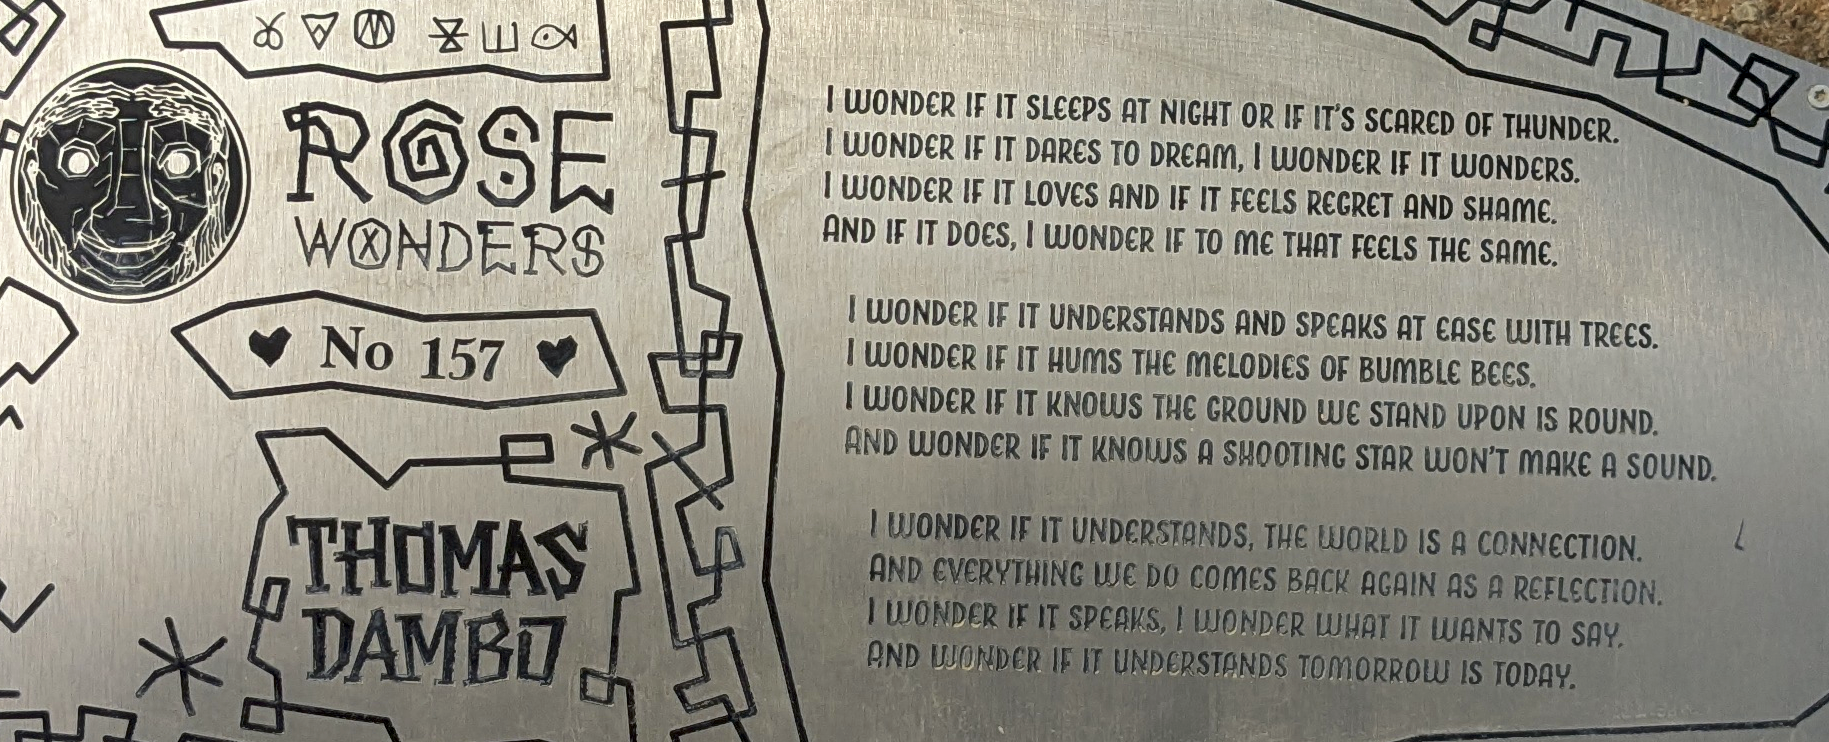 ROSE
WONDERS
No 157
THOMAS
DAMBO
I WONDER IF IT SLEEPS AT NIGHT OR IF IT'S SCARED OF THUNDER.
I WONDER IF IT DARES TO DREAM, I WONDER IF IT WONDERS.
I WONDER IF IT LOVES AND IF IT FEELS REGRET AND SHAME.
AND IF IT DOES, I WONDER IF TO ME THAT FEELS THE SAME.
I WONDER IF IT UNDERSTANDS AND SPEAKS AT EASE WITH TREES.
I WONDER IF IT HUMS THE MELODIES OF BUMBLE BEES.
I WONDER IF IT KNOWS THE GROUND WE STAND UPON IS ROUND.
AND WONDER IF IT KNOWS A SHOOTING STAR WON'T MAKE A SOUND.
I WONDER IF IT UNDERSTANDS, THE WORLD IS A CONNECTION.
AND EVERYTHING WE DO COMES BACK AGAIN AS A REFLECTION.
I WONDER IF IT SPEAKS, I WONDER WHAT IT WANTS TO SAY.
AND WONDER IF IT UNDERSTANDS TOMORROW IS TODAY.